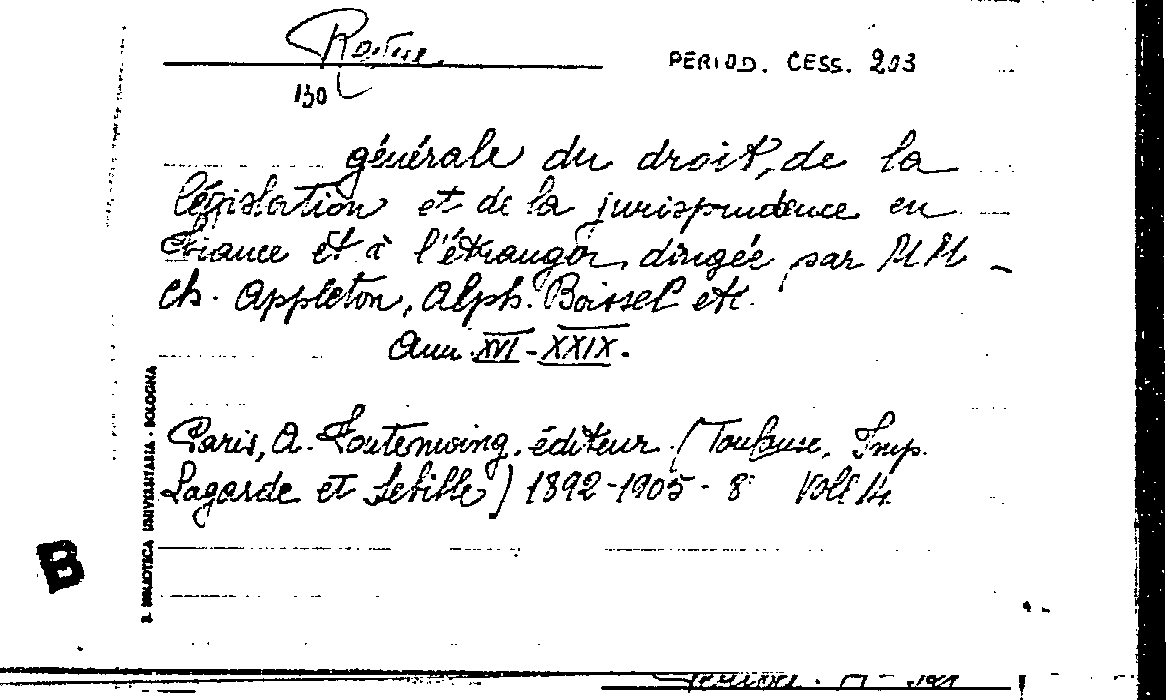 Revue
PERIOD. CESS. 203
130
générale du droit, de la
législation et de la jurisprudence en
France et à l'étranger, dirigée par MM
Ch. Appleton, Alph. Boissel etc.
Ann. XVI - XXIX.
Paris, A. éditeur (Toulouse, Imp.
Lagarde et Sebille) 1892-1905 - 8° Voll 14
B. BIBLIOTECA UNIVERSITARIA - BOLOGNA
B